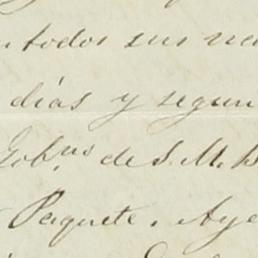 todos sus
días y segun
Gob.nos de S. M. B
Paquete. Aye